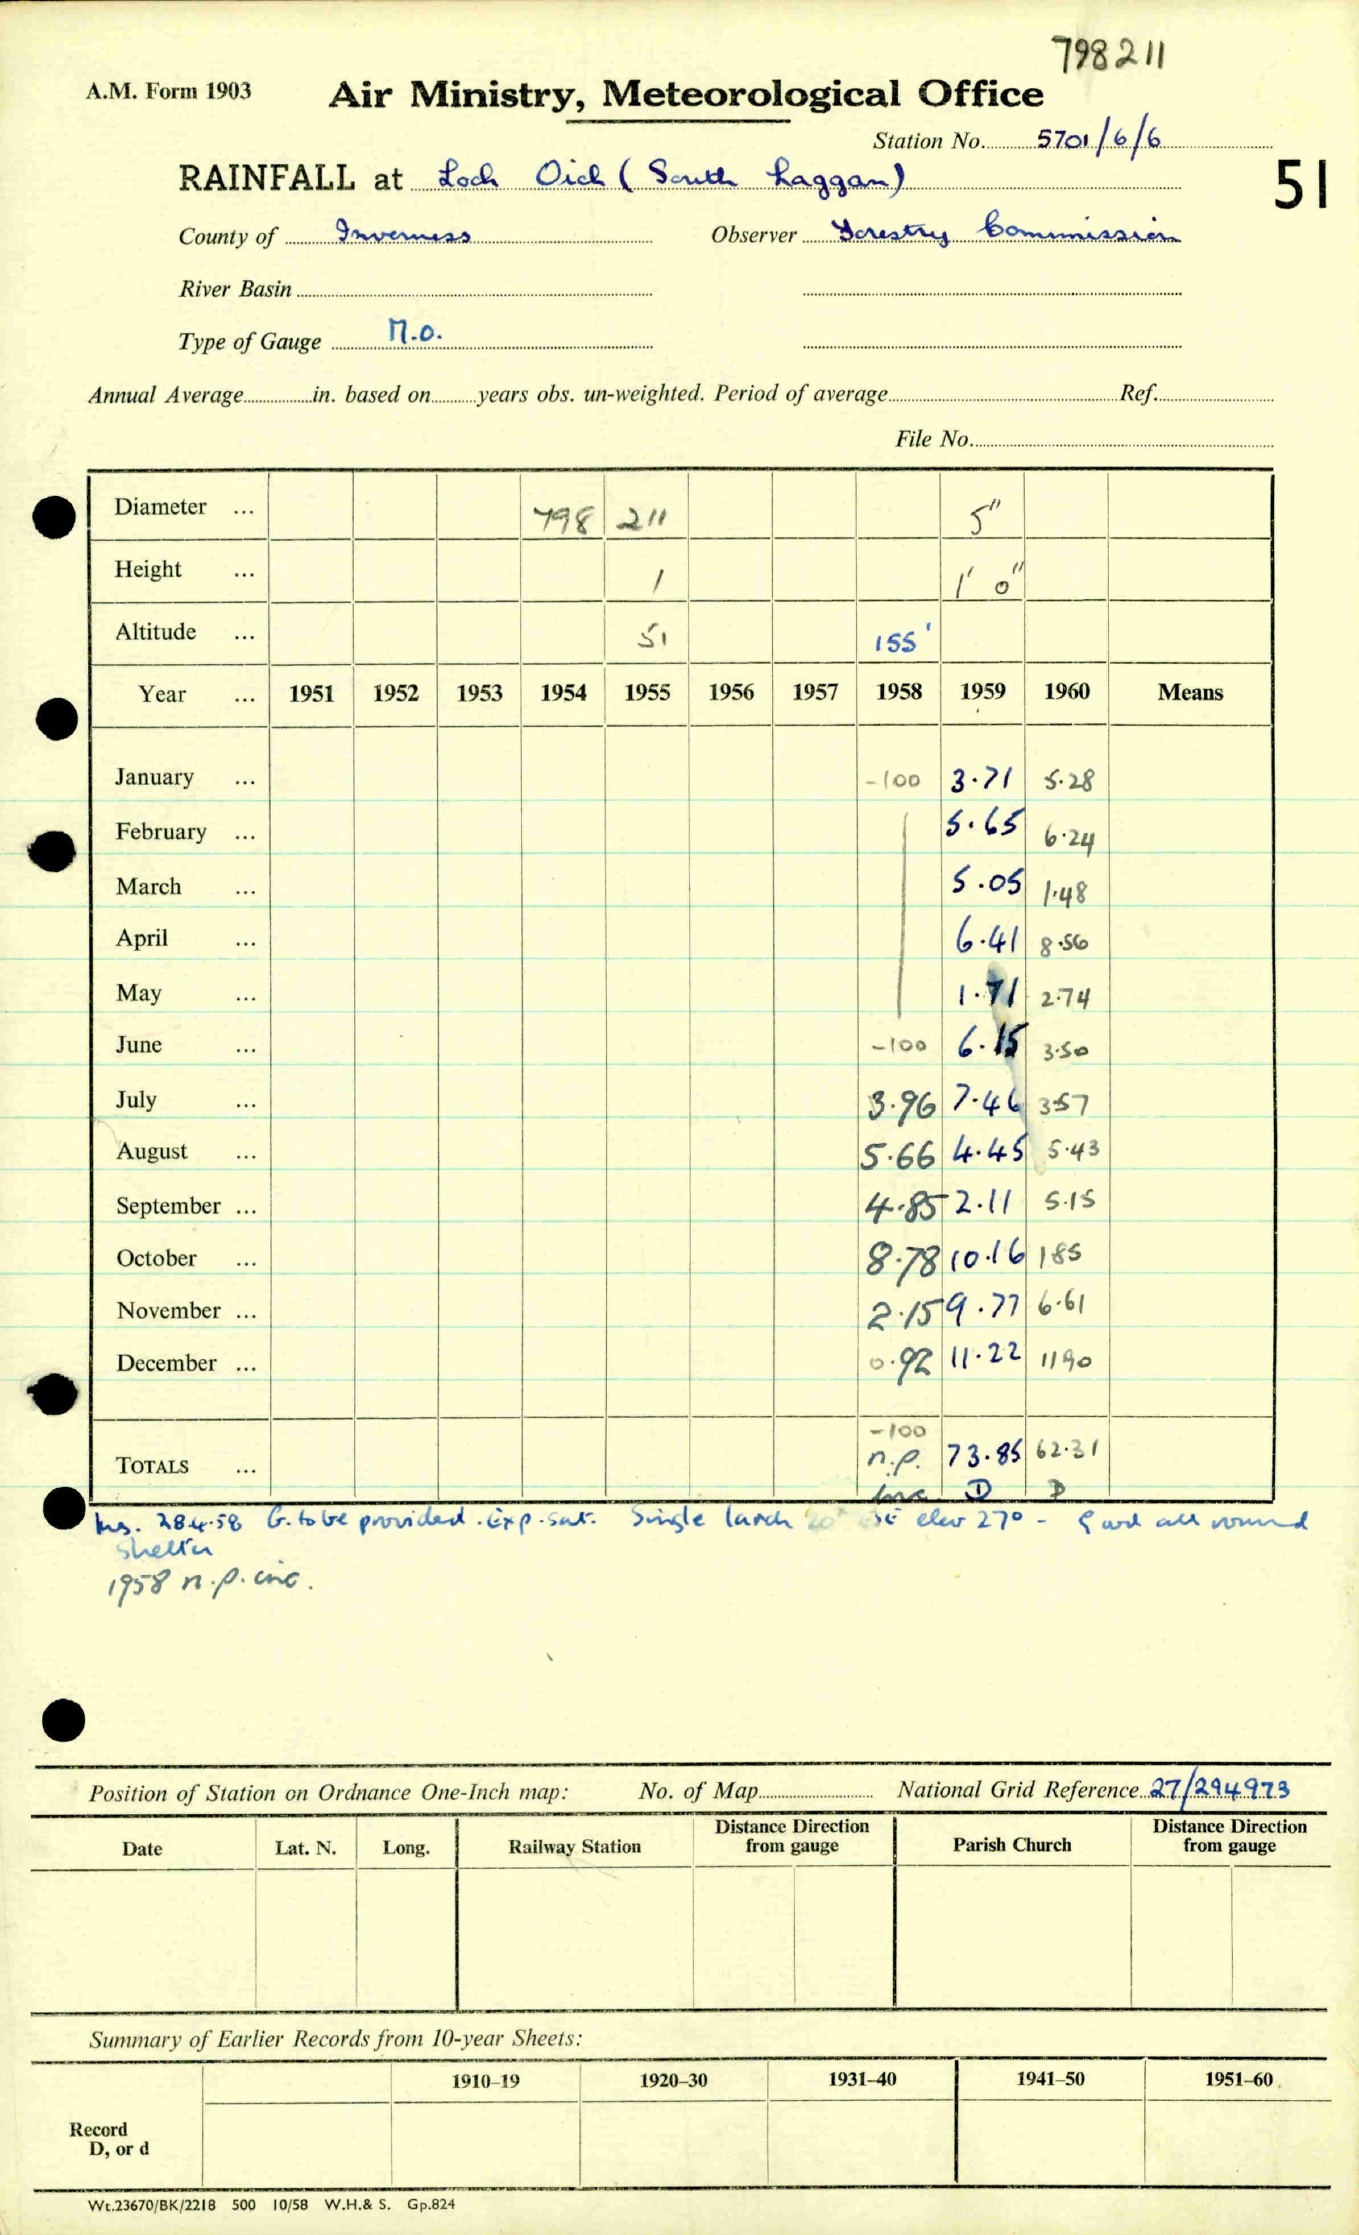 798211
A.M. Form 1903 Air Ministry, Meteorological Office
Station No. 5701/6/6
RAINFALL at Loch Oich (South Laggan) 51
County of Inverness Observer Forestry Commission
River Basin
Type of Gauge M.O.
Annual Average in. based on years obs. un-weighted. Period of average Ref.
File No.
Diameter ... 798 211 5"
Height ... 1 1' 0"
Altitude ... 51 155'
Year ... 1951 1952 1953 1954 1955 1956 1957 1958 1959 1960 Means
January ... -100 3.71 5.28
February ... 5.65 6.24
March ... 5.05 1.48
April ... 6.41 8.56
May ... 1.71 2.74
June ... -100 6.15 3.50
July ... 3.96 7.46 3.57
August ... 5.66 4.45 5.43
September ... 4.85 2.11 5.15
October ... 8.78 10.16 1.85
November ... 2.15 9.77 6.61
December ... 0.92 11.22 11.90
-100
TOTALS ... n.p. 73.85 62.31
inc D D
Ins. 28.4.58 G. to be provided. Exp. sat. Single larch elev 27° - all round
shelter
1958 n.p. inc.
Position of Station on Ordnance One-Inch map: No. of Map National Grid Reference 27/294973
Date Lat. N. Long. Railway Station Distance Direction from gauge Parish Church Distance Direction from gauge
Summary of Earlier Records from 10-year Sheets:
1910–19 1920–30 1931–40 1941–50 1951–60
Record
D, or d
Wt.23670/BK/2218 500 10/58 W.H.& S. Gp.824